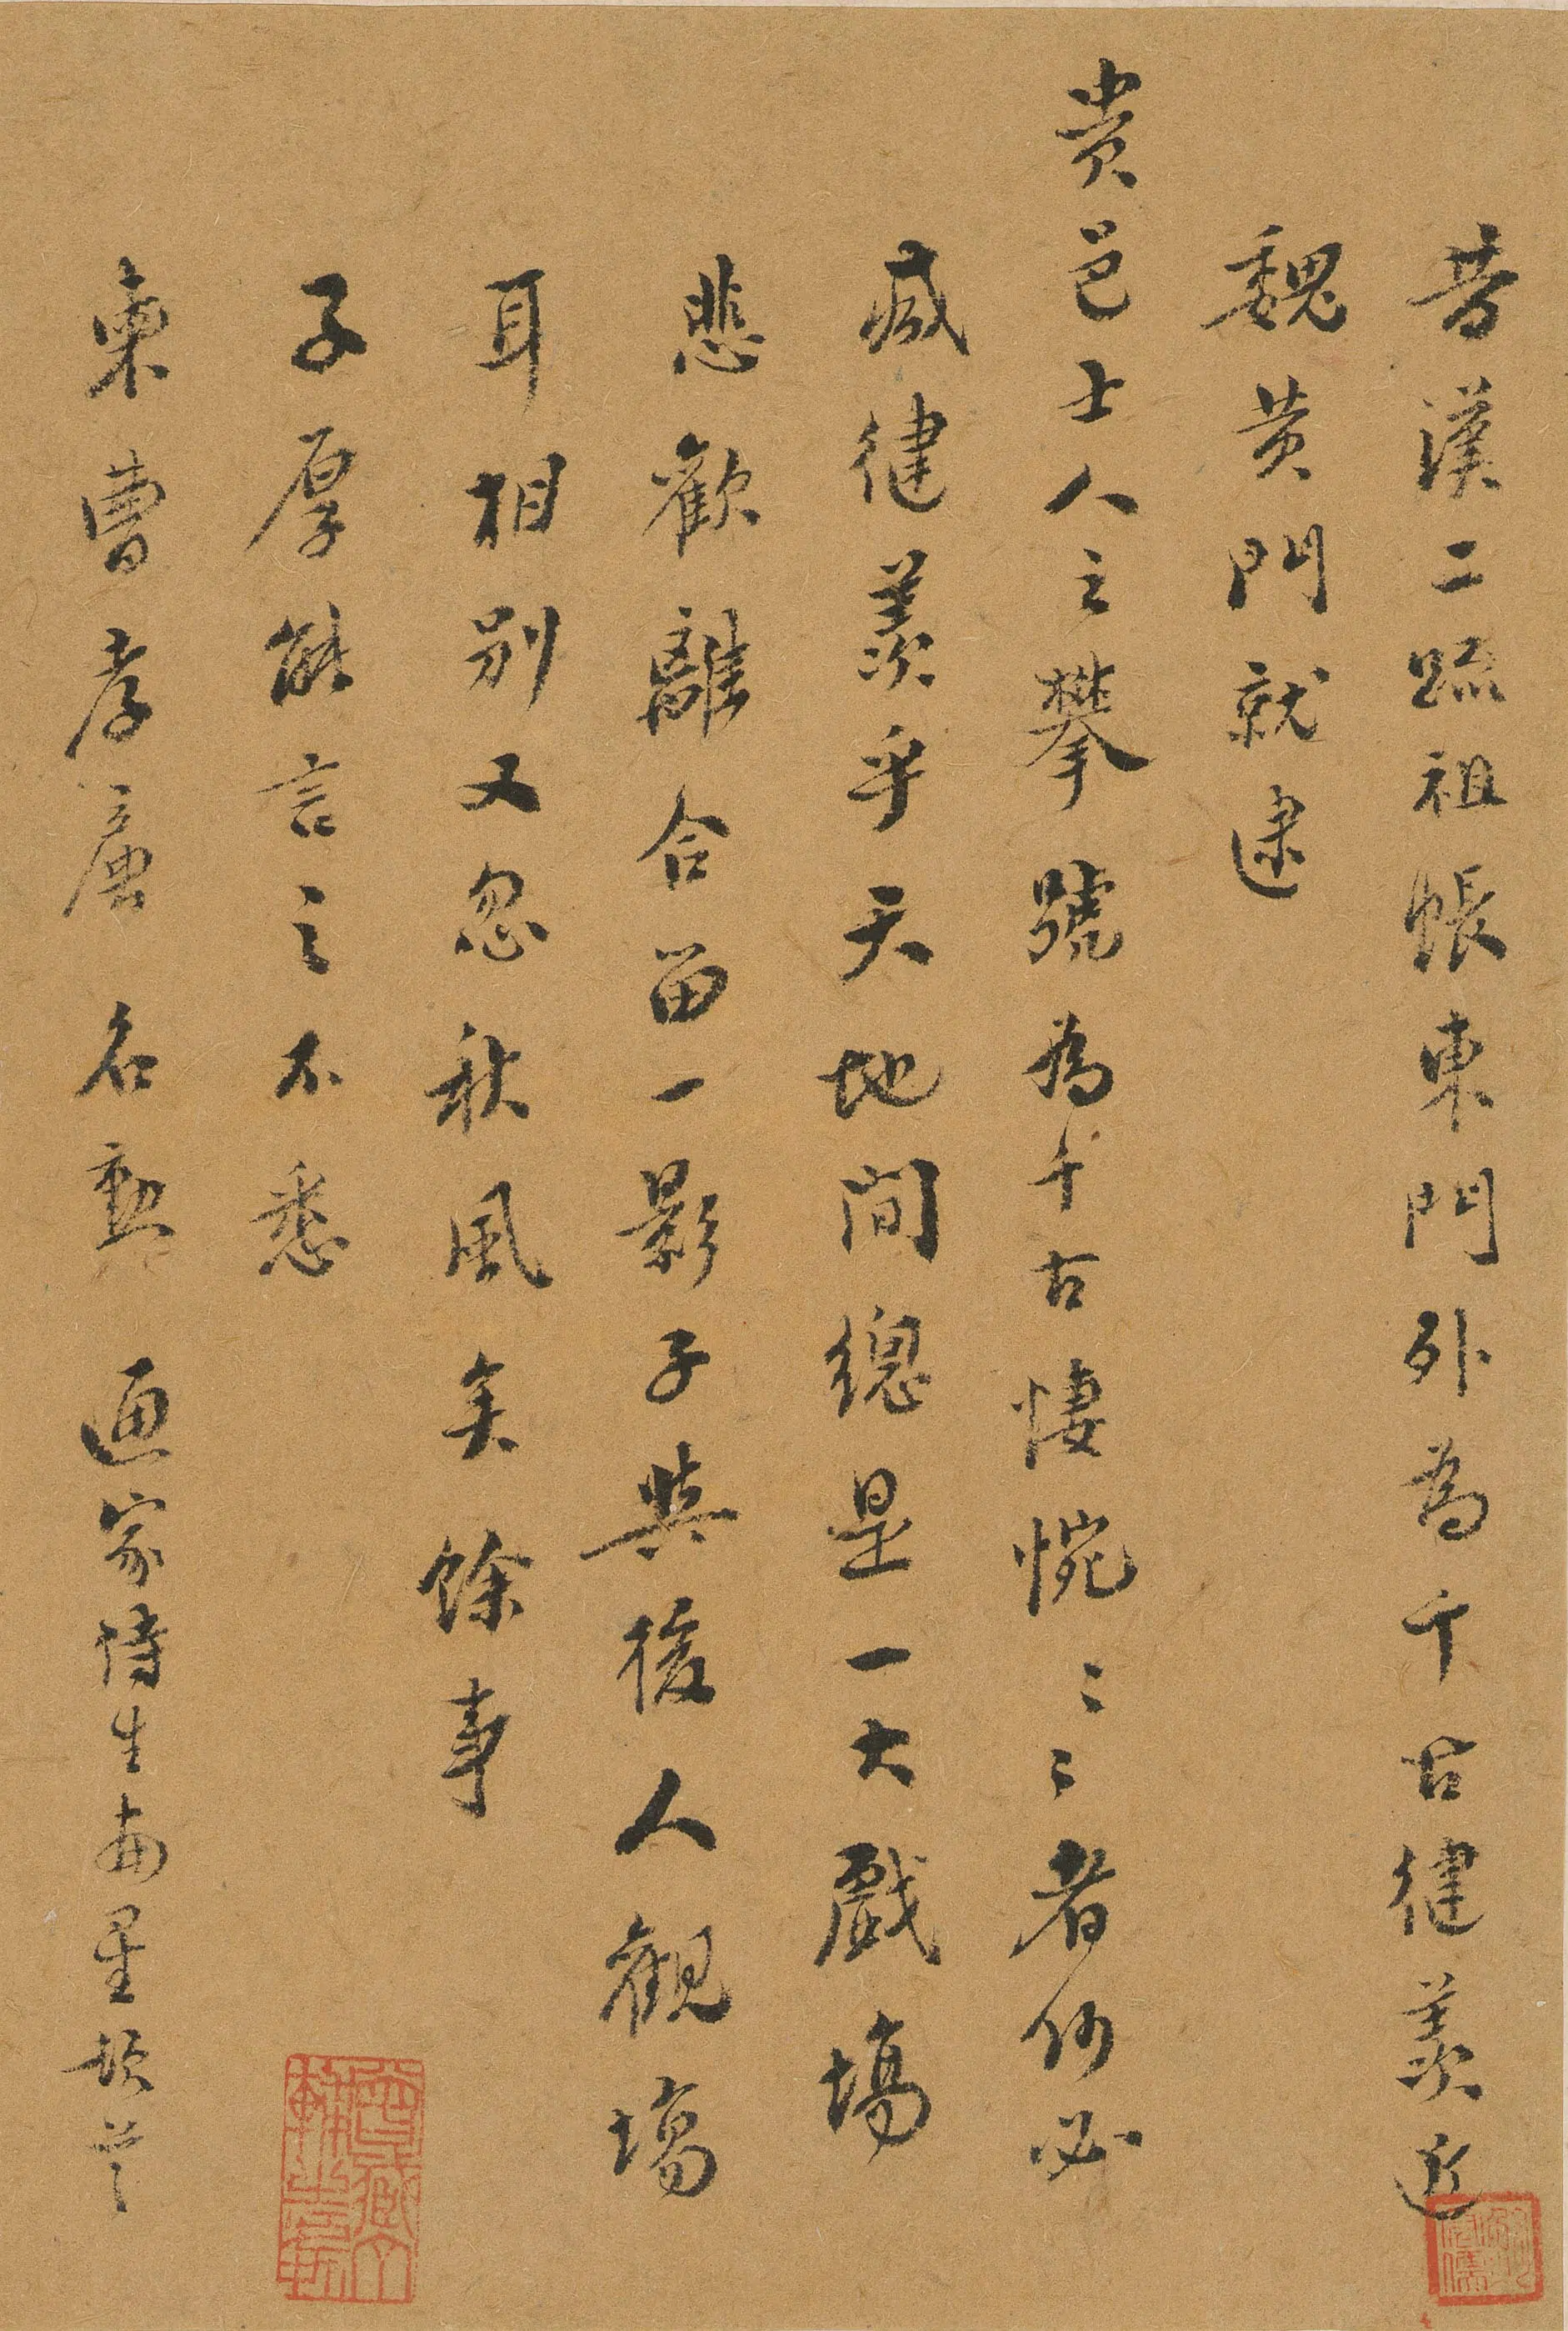 昔漢二疏祖帳東門外為千古健羨近
魏黃門就逮
貴邑士人之攀號為千古悽惋〻〻者何必
減健羨乎天地間總是一大戲場
悲歡離合留一影子與後人觀場
耳相別又忽秋風矣餘事
子厚能言之不悉
東曹孝廉 名勳 通家侍生 頓首
曾藏 軒